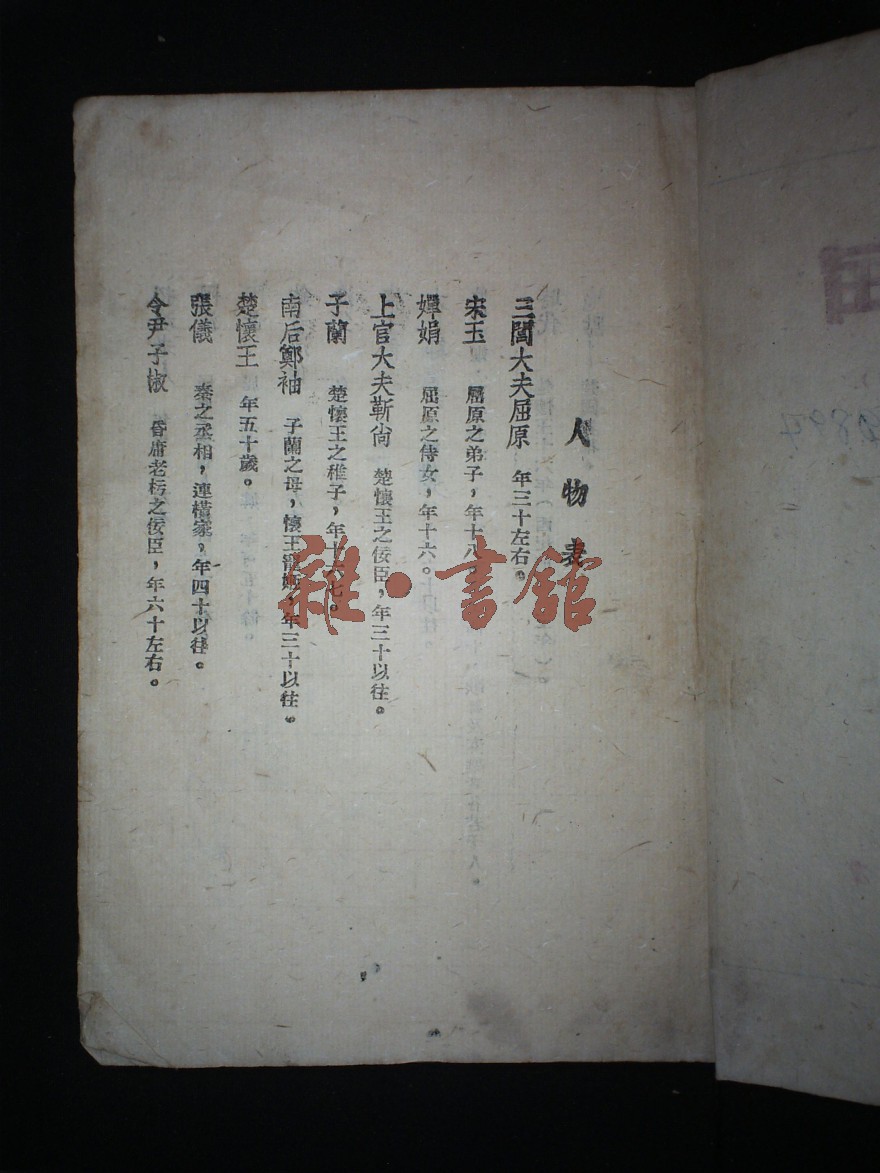 人物表
三閭大夫屈原 年三十左右。
宋玉 屈原之弟子，年十八
嬋娟 屈原之侍女，年十六。
上官大夫靳尚 楚懷王之佞臣，年三十以往。
子蘭 楚懷王之稚子，年十六七。
南后鄭袖 子蘭之母，懷王寵姬，年三十以往。
楚懷王 年五十歲。
張儀 秦之丞相，連橫家，年四十以往。
令尹子椒 昏庸老朽之佞臣，年六十左右。
雜·書館